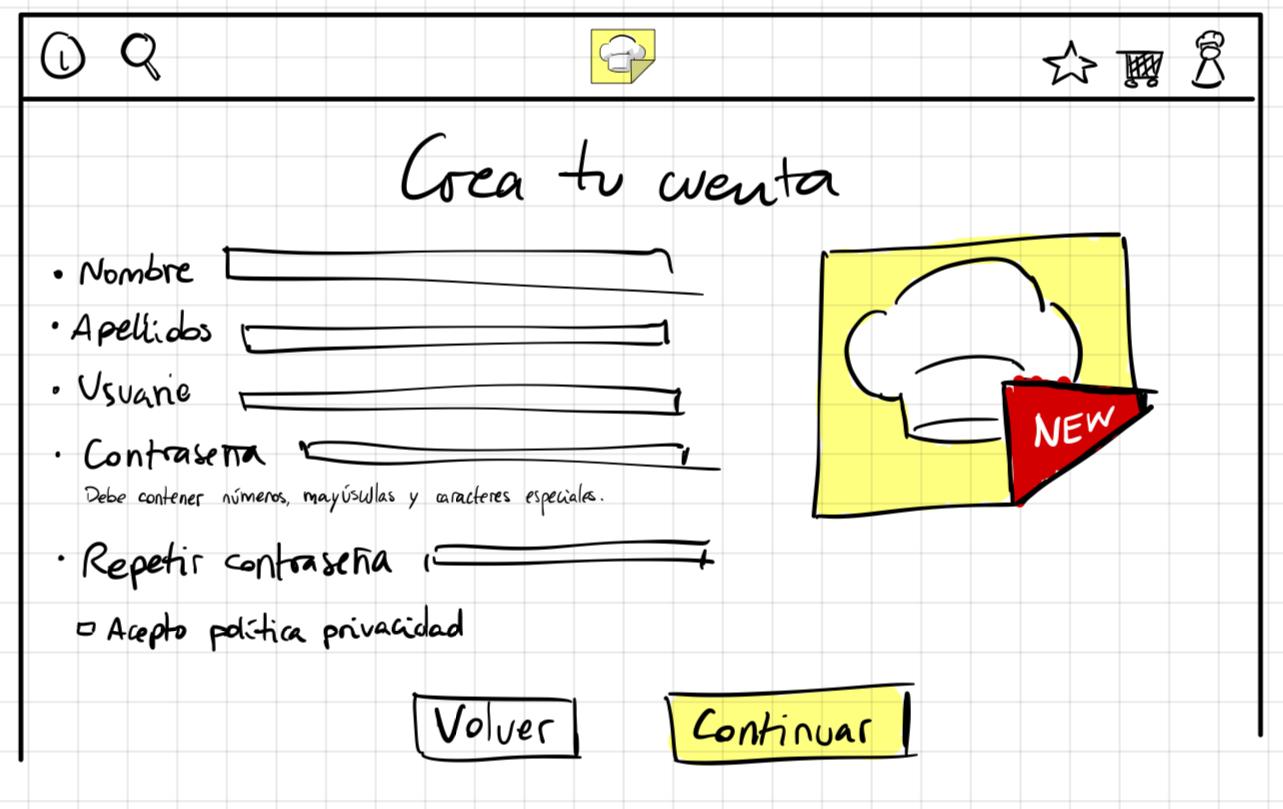 i
Crea tu cuenta
• Nombre
• Apellidos
• Usuario
• Contraseña
Debe contener números, mayúsculas y caracteres especiales.
• Repetir contraseña
Acepto política privacidad
NEW
Volver
Continuar